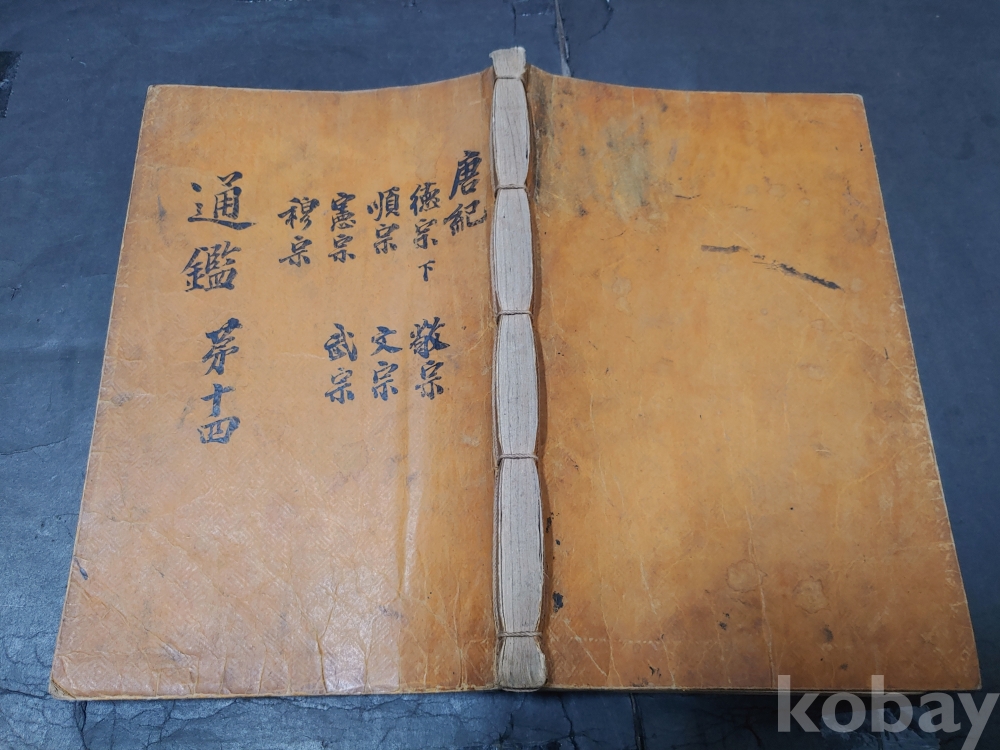 唐紀
德宗 下
順宗
憲宗
穆宗
敬宗
文宗
武宗
通鑑 苐十四
kobay